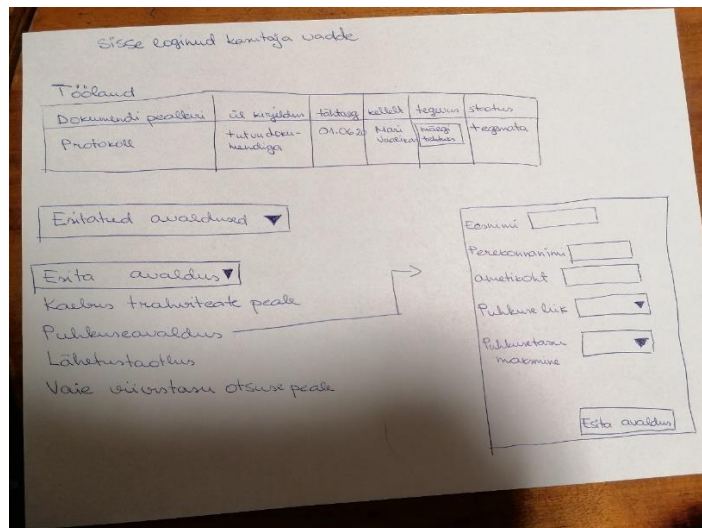 Sisse loginud kasutaja vaade
Töölaud
Dokumendi pealkiri ül kirjeldus tähtaeg kellelt tegevus staatus
Protokoll tutvu doku- 01.062 Mari märgi tegemata
mendiga
Esitatud avaldused
Esita avaldus
Kaebus trahviteate peale
Puhkuseavaldus
Lähetustaotlus
Vaie viivistasu otsuse peale
Eesnimi
Perekonnanimi
ametikoht
Puhkuse liik
Puhkusetasu
maksmine
Esita avaldus